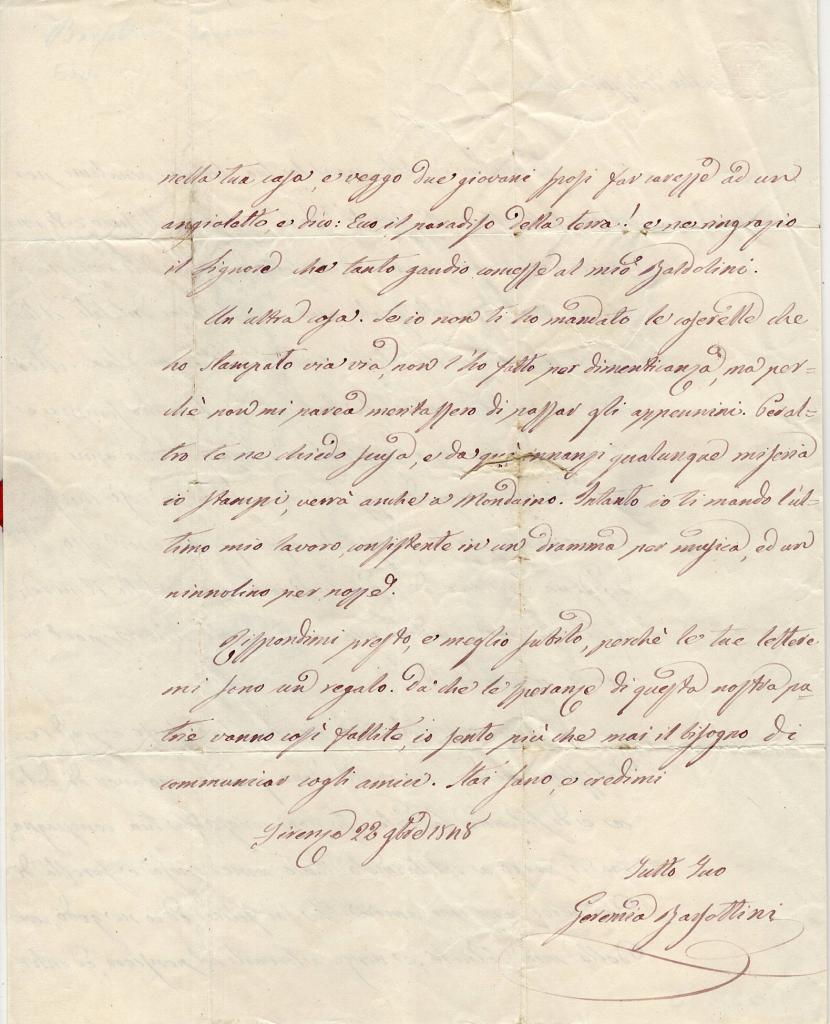 nella tua casa, e veggo due giovani sposi far carezze ad un
angioletto e dico: Ecco il paradiso della terra! e ne ringrazio
il Signore che tanto gaudio concesse al mio Baldolini.
Un'altra cosa. Se io non ti ho mandato le coserelle che
ho stampato via via, non l'ho fatto per dimenticanza, ma per=
chè non mi parea meritassero di passar gli appennini. Peral=
tro te ne chiedo scusa, e da quì innanzi qualunque miseria
io stampi, verrà anche a Mondaino. Intanto io ti mando l'ul=
timo mio lavoro, consistente in un dramma per musica, ed un
ninnolino per nozze.
Rispondimi presto, e meglio subito, perchè le tue lettere
mi sono un regalo. Da che le speranze di questa nostra pa=
tria vanno così fallite, io sento più che mai il bisogno di
communicar cogli amici. Stai sano, e credimi
Firenze 22 9bre 1848
Tutto Tuo
Geremia Barsottini